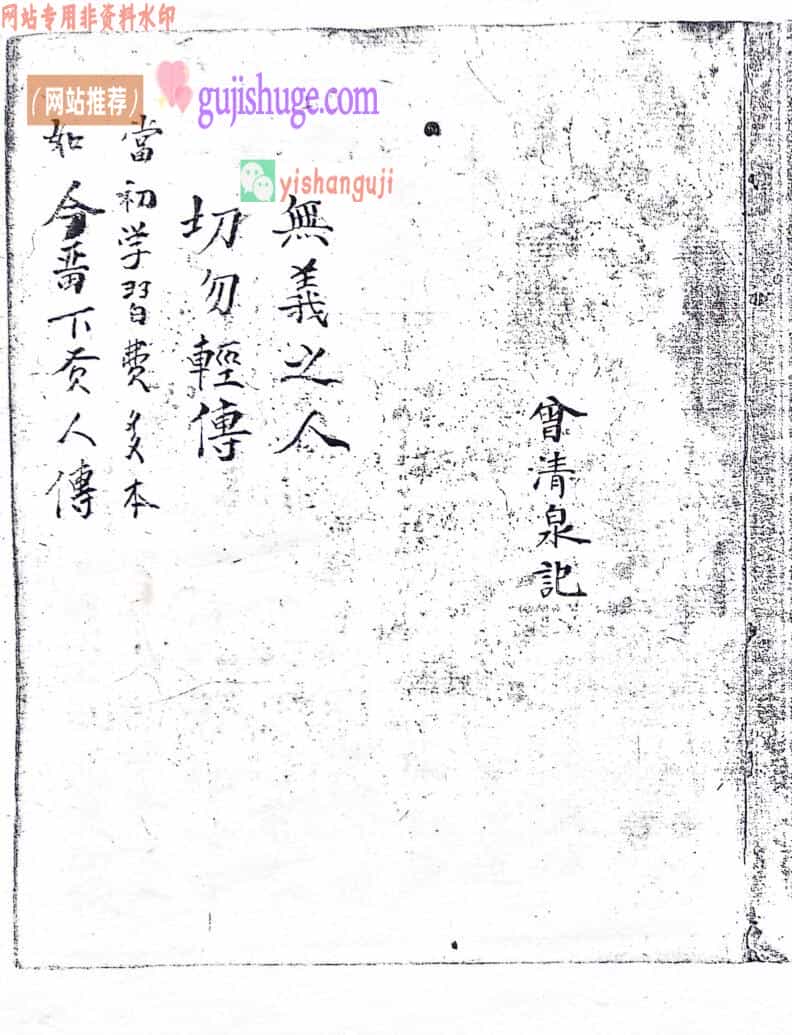 网站专用非资料水印
（网站推荐）
gujishuge.com
yishanguji
曾清泉記
無義之人
切勿輕傳
當初学習費多本
如今下人傳